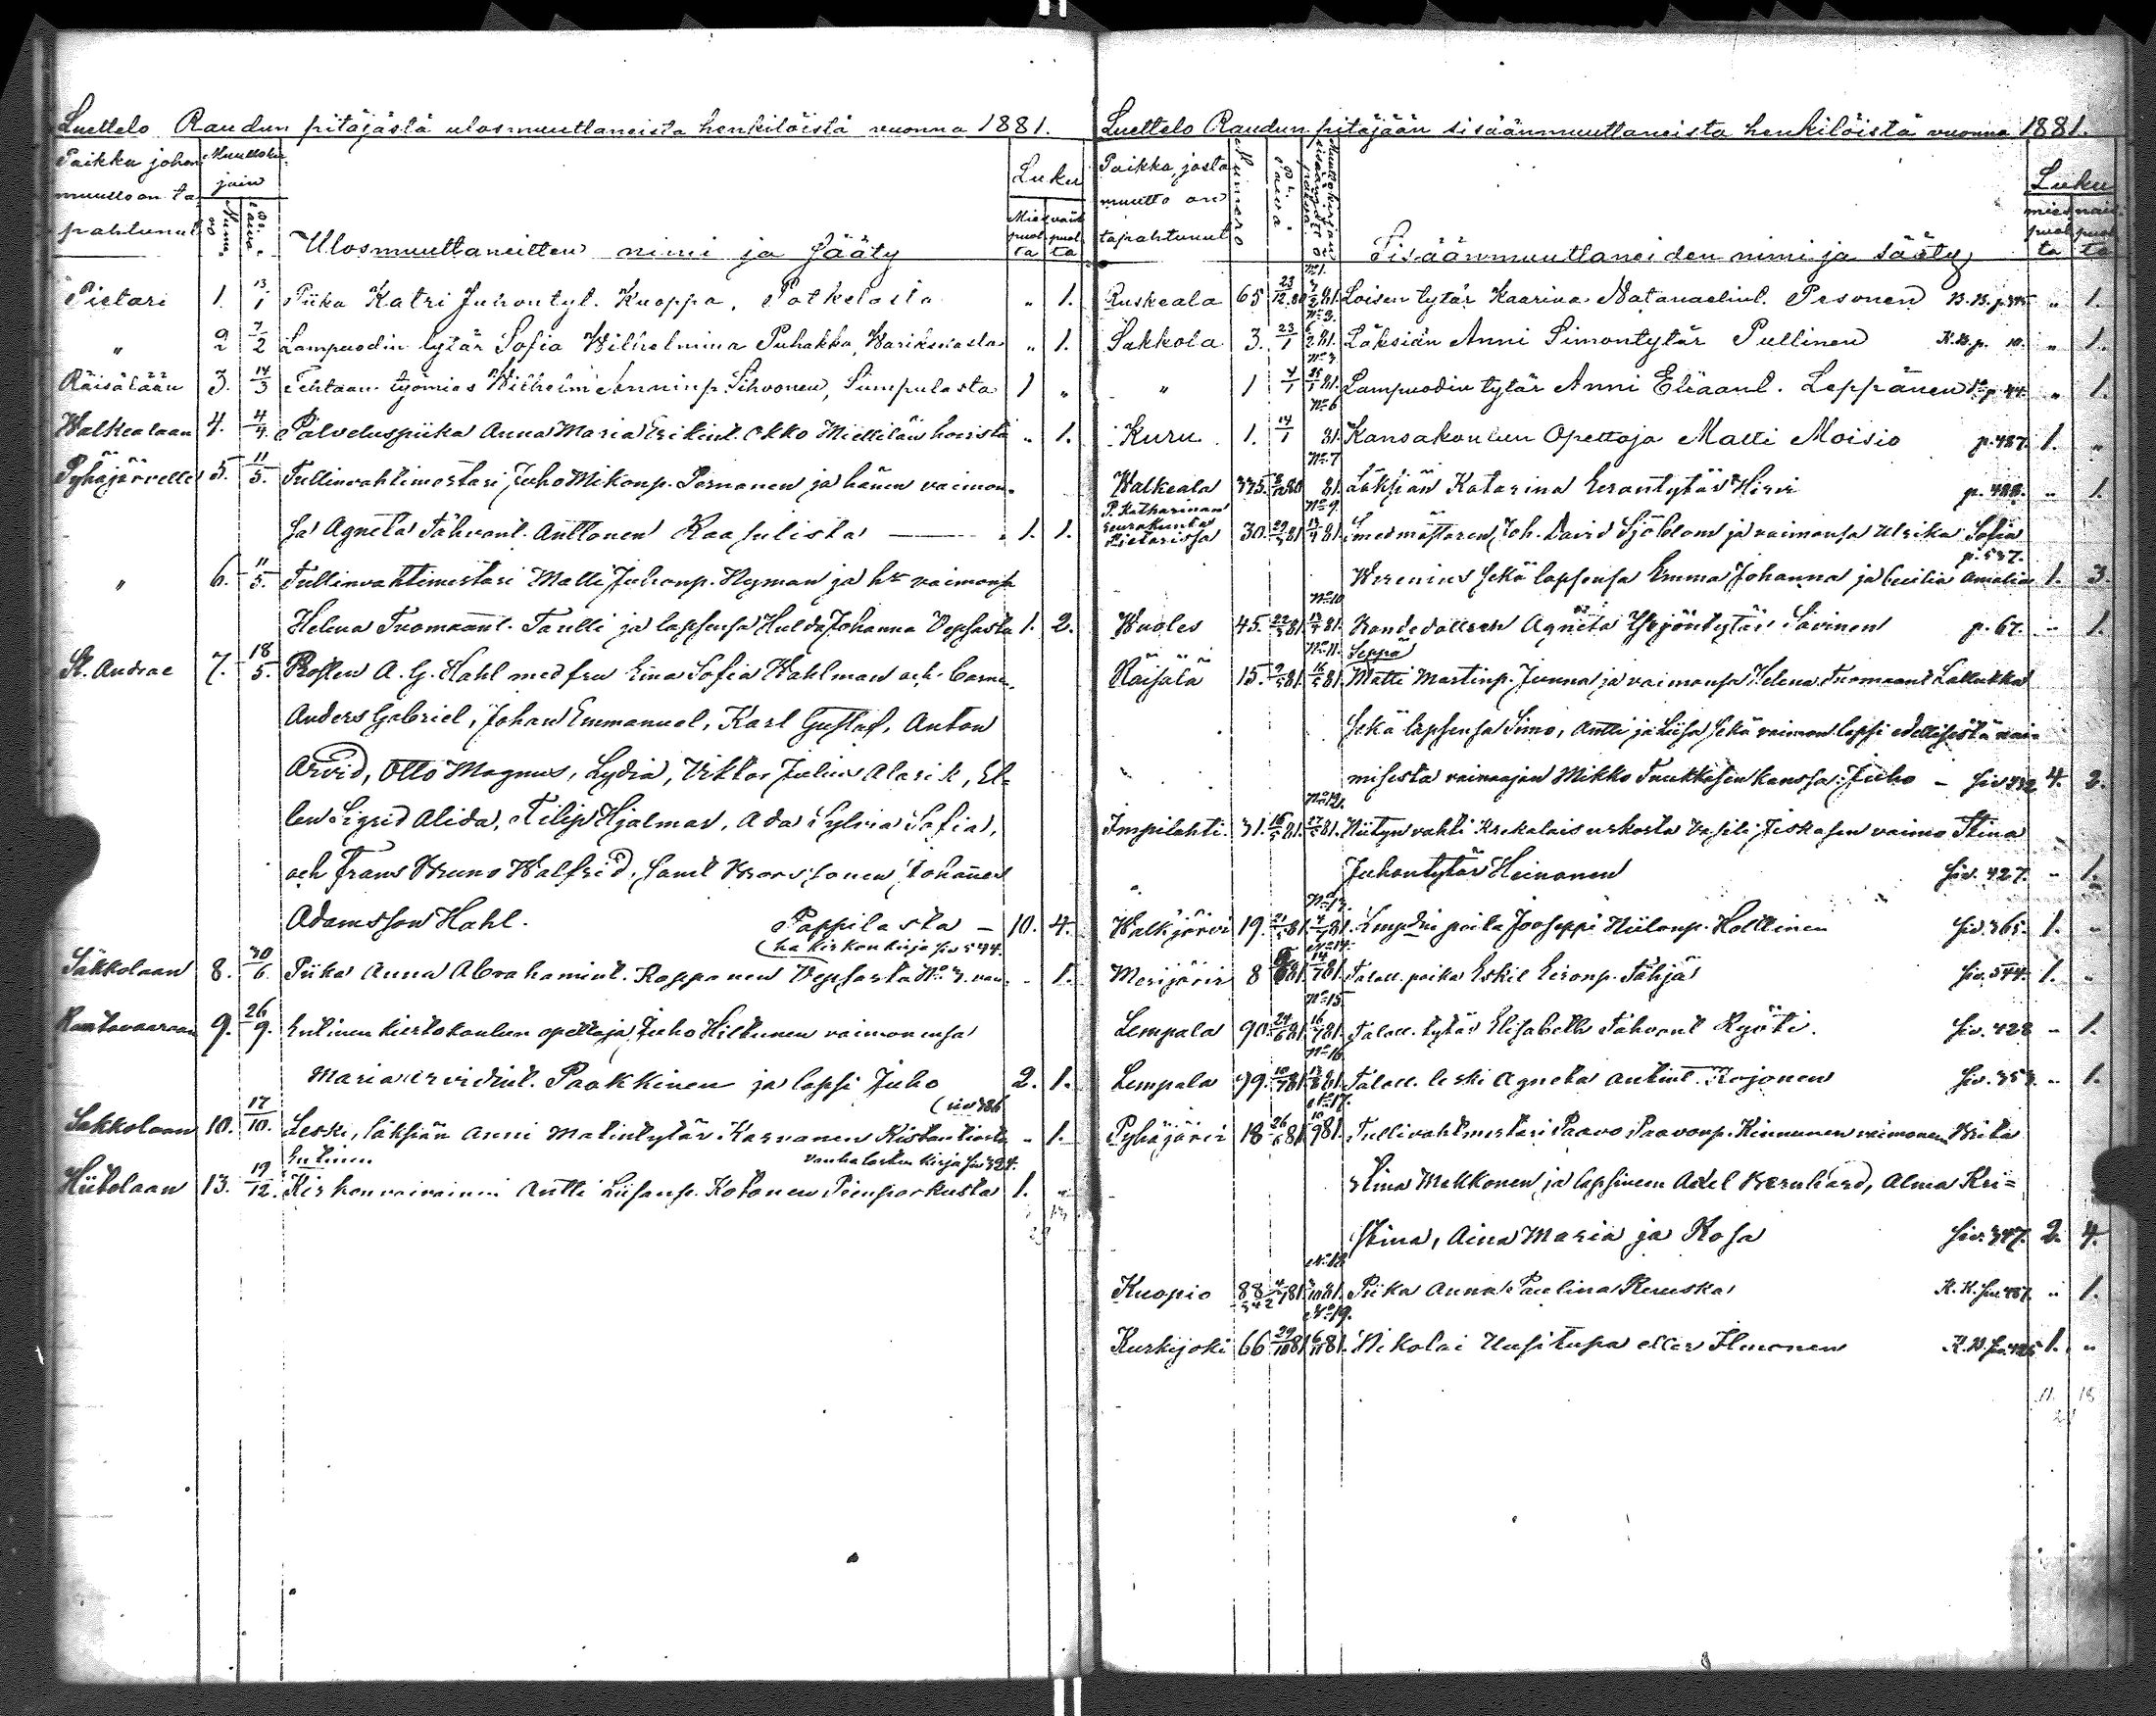 Luettelo Raudun pitäjästä ulosmuuttaneista henkilöistä vuonna 1881.
Paikka johon muutto on tapahtunut
Muuttokirjain
Numero
Päivä
Ulosmuuttaneitten nimi ja sääty
Luku
Miespuolta
vaimpuolta
Pietari 1. 13/1 Piika Katri Juhontyt. Kuoppa, Potkelasta " 1.
" 2 7/2 Lampuodin tytär Sofia Wilhelmina Puhakka, Warikselasta " 1.
Räisälään 3. 14/3 Tehtaan työmies Wilhelm Sihvonen, Sumpulasta 1 "
Walkealaan 4. 4/4 Palveluspiika Anna Maria Erikint. Okko Miettilän hovista " 1.
Pyhäjärvelle 5. 11/5. Tullinvahtimestari Juho Mikonp. Pornanen ja hänen vaimon-
sa Agneta Tahvant. Anttonen Raasulista 1. 1.
" 6. 11/5. Tullinvahtimestari Matti Juhonp. Nyman ja hn vaimonsa
Helena Tuomaant. Taulli ja lapsensa Hulda Johanna Vepsasta 1. 2.
St. Andrae 7. 18/5. Prosten A. G. Hahl med fru Eina Sofia Wahlman och barnen
Anders Gabriel, Johan Emmanuel, Karl Gustaf, Anton
Arvid, Otto Magnus, Lydia, Viktor Julius Alarik, El-
len Sigrid Alida, Filip Hjalmar, Ada Sylvia Sofia,
och Frans Bruno Walfrid, samt Brorssonen Johannes
Adamsson Hahl. Pappilasta – 10. 4.
(ha kirkonkirja siv 544.
Sakkolaan 8. 30/6. Piika Anna Abrahamint. Ropponen Vepsasta No 3. " 1.
Rautavaaraan 9. 26/9. Entinen kiertokoulun opettaja Juho Hiltunen vaimonensa
Maria Arvidint. Paakkinen ja lapsi Juho 2. 1.
(siv 386
Sakkolaan 10. 17/10. Leski, läksiän Anni Matintytär Karvanen " 1.
Entinen vanha lasten kirja siv 324.
Hiitolaan 13. 19/12. Kirkonvaivainen Antti Liisanp. Kotonen Pienporkusta 1. "
Luettelo Raudun pitäjään sisäänmuuttaneista henkilöistä vuonna 1881.
Paikka, josta muutto on tapahtunut
Numero
Päivä
Sisäänmuuttaneiden nimi ja sääty
Luku
miespuolta
naispuolta
No 1.
Ruskeala 65 23/12.80 Loisen tytär Kaarina Natanaelint. Pesonen " 1.
No 3.
Sakkola 3. 23/1 6/2 81. Läksiän Anni Simontytär Pullinen K.K. p. 10. " 1.
" 1 4/1 Lampuodin tytär Anni Eliaant. Leppänen p. 44. " 1.
No 6
Kuru 1. 14/1 81. Kansakoulun Opettaja Matti Moisio p. 487. 1. "
No 7
Walkeala 335. 81. Läksiän Katarina Eerontytär Hirvi p. 488. " 1.
P. Katharinan seurakunta Pietarissa No 9.
30. 29/3 81 13/4 81. Smedmästaren Joh. David Sjöblom ja vaimonsa Ulrika Sofia
p. 537.
Werenius sekä lapsensa Emma Johanna ja Cecilia Amalia 1. 3.
No 10
Wuoles 45. 22/ 81. Agneta Yrjöntytär Savinen p. 67. " 1.
No 11. Seppä
Räisälä 15. 9/5 81. 16/5 81. Matti Martinp. Junna ja vaimonsa Helena Tuomaant Lallukka
sekä lapsensa Simo, Antti ja Liisa sekä vaimon lapsi edellisestä nai-
misesta vainaajan Mikko Tuukkasen kanssa: Juho – siv 332 4. 2.
No 12.
Impilahti. 31. 16/5 81. 27/5 81. Hiityn vahti Krekalais uskosta Vasili Jeskasen vaimo Stina
Juhontytär Heinonen siv. 427. " 1.
No 13.
Walkjärvi 19. 81. 81. Lmpdn poika Jooseppi Niilonp. Hollinen siv. 365. 1. "
No 14.
Merijärvi 8 81. 14/7 81. Talall. poika Eskil Eeronp. Tähjä siv. 544. 1. "
No 15
Lempala 90. 24/6 81. 16/7 81. Talall. tytär Elisabeth Tahvant Ryöti. siv. 428 – 1.
No 16.
Lempala 99. 10/7 81. 13/8 81. Talall. leski Agneta Antint. Kojonen siv. 353. " 1.
No 17.
Pyhäjärvi 18 26/ 81. 10/9 81. Tullivahtmestari Paavo Paavonp. Kinnunen vaimonen Brita
Stina Mekkonen ja lapsineen Axel Bernhard, Alma Kri=
stina, Aina Maria ja Rosa siv. 347. 2. 4.
No 18.
Kuopio 88 81. 81. Piika Anna Paulina Ruuska K.K. siv 487. " 1.
No 19.
Kurkijoki 66 29/10 81. 6/11 81. Nikolai Uusitupa eller Ilmonen 1. "